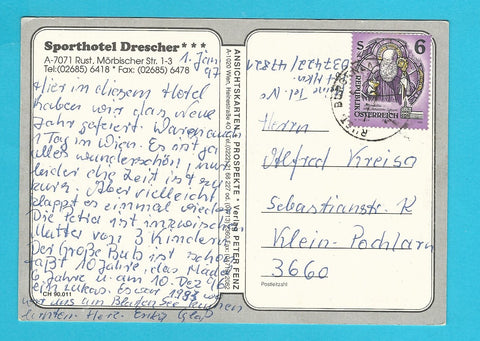 Sporthotel Drescher ***
A-7071 Rust, Mörbischer Str. 1-3
Tel:(02685) 6418 * Fax: (02685) 6478
1. Jän.
97
Hier in diesem Hotel
haben wir das Neue
Jahr gefeiert. Waren auch
1 Tag in Wien. Es ist ja
alles wunderschön, nur
leider die Zeit ist zu
kurz. Aber vielleicht
klappt es einmal wieder
Die Petra ist inzwischen
Mutter von 3 Kindern
Der Große Bub ist schon
fast 10 Jahre, das Mädel
6 Jahre u. am 10. Dez. 96
ein Lukas. Es war 1993
wir uns am
Herz.
CH 90.011
ANSICHTSKARTEN * PROSPEKTE * Verlag PETER FENZ
S 6
REPUBLIK
ÖSTERREICH
RUST
Meine Tel. Nr.
Herrn
Alfred Kreisa
Sebastianstr.
Klein-Pöchlarn
3660
Postleitzahl